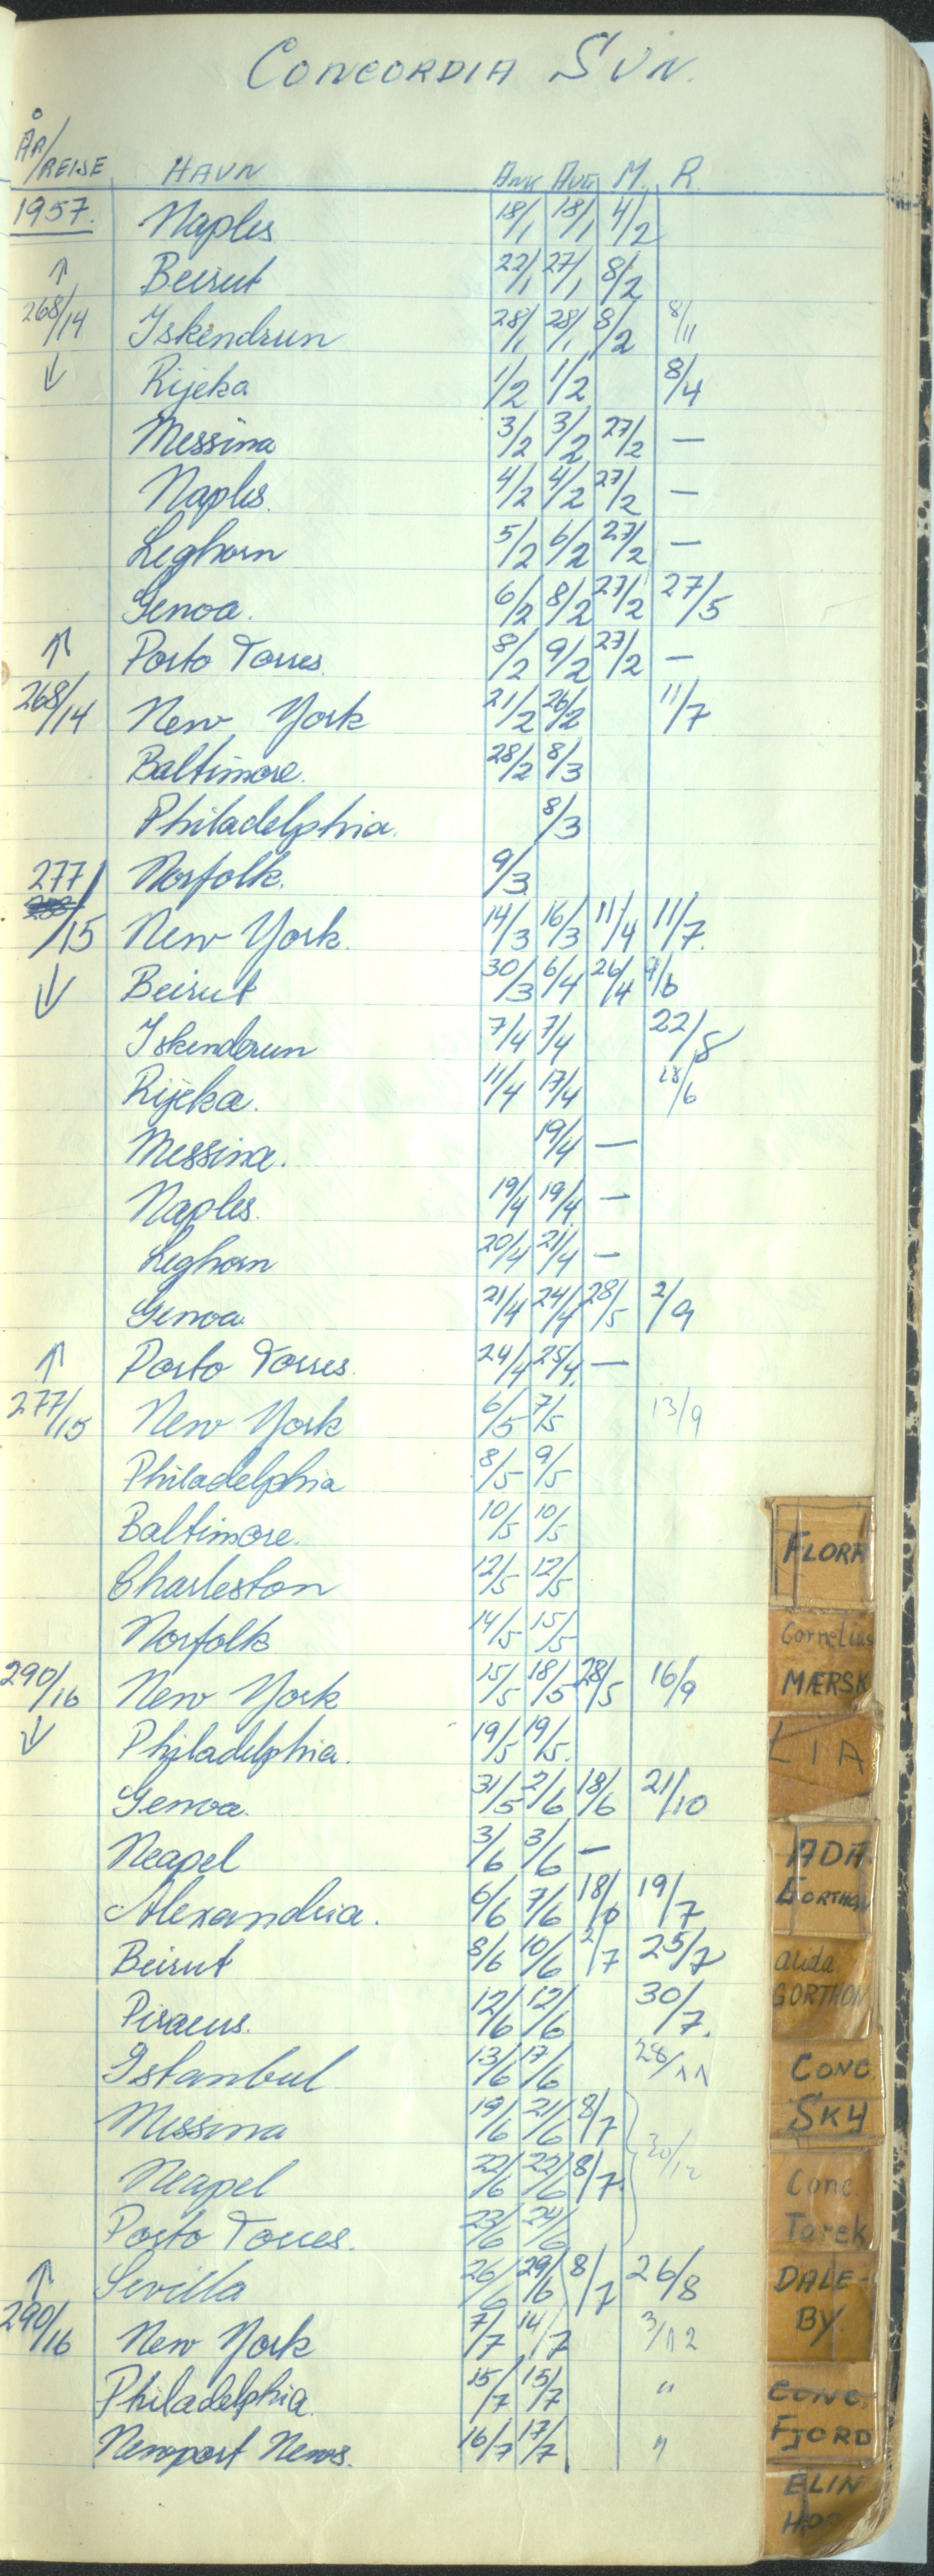 CONCORDIA SUN.
ÅR/REISE HAVN ANK AVG. M. R.
1957. Naples 18/1 18/1 4/2
↑ Beirut 22/1 27/1 8/2
268/14 Iskendrun 28/1 28/1 8/2 8/11
↓ Rijeka 1/2 1/2 8/4
Messina 3/2 3/2 27/2 —
Naples. 4/2 4/2 27/2 —
Leghorn 5/2 6/2 27/2 —
Genoa. 6/2 8/2 27/2 27/5
↑ Porto Torres 8/2 9/2 27/2 —
268/14 New York 21/2 26/2 11/7
Baltimore. 28/2 8/3
Philadelphia. 8/3
277/15 Norfolk. 9/3
New York. 14/3 16/3 11/4 11/7.
↓ Beirut 30/3 6/4 26/4 9/6
Iskenderun 7/4 7/4 22/8
Rijeka. 11/4 17/4 18/6
Messina. 19/4 —
Naples. 19/4 19/4 —
Leghorn 20/4 21/4 —
Genoa. 21/4 24/4 28/5 2/9
↑ Porto Torres. 24/4 25/4. —
277/15 New York 6/5 7/5 13/9
Philadelphia 8/5 9/5
Baltimore. 10/5 10/5
Charleston 12/5 12/5
Norfolk 14/5 15/5
290/16 New York 15/5 18/5 28/5 16/9
↓ Philadelphia. 19/5 19/5.
Genoa. 31/5 2/6 18/6 21/10
Neapel 3/6 3/6 —
Alexandria. 6/6 7/6 18/6 19/7
Beirut 8/6 10/6 2/7 25/7
Piraeus. 12/6 12/6 30/7.
Istanbul 13/6 17/6 28/11
Messina 19/6 21/6 8/7
Neapel 22/6 22/6 8/7. 30/12
Porto Torres. 23/6 24/6
↑ Sevilla 26/6 29/6 8/7 26/8
290/16 New York 7/7 14/7 3/12
Philadelphia. 15/7 15/7 "
Newport News. 16/7 17/7 "
FLORA
Cornelius
MÆRSK
LIA
ADA
GORTHON
alida
GORTHON
CONC.
SKY
Conc.
Tarek
DALE-
BY.
CONC.
FJORD
ELIN